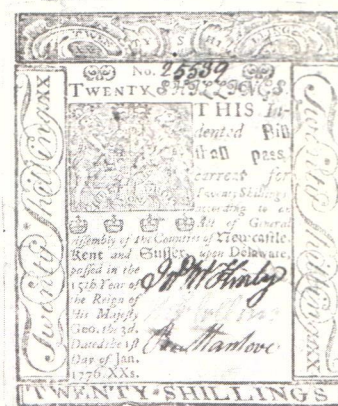 TWENTY SHILLINGS
No. 25539
TWENTY SHILLINGS.
THIS In-
dented Bill
shall pass
current for
Twenty Shillings
according to a
Act of General
Assembly of the Counties of Newcastle
Kent and Sussex upon Delaware,
passed in the
15th Year of
the Reign of
His Majesty
Geo. the 3d.
Dated the 1st
Day of Jan.
1776. XXs.
Twenty Shillings XX
Twenty Shillings XX
TWENTY-SHILLINGS